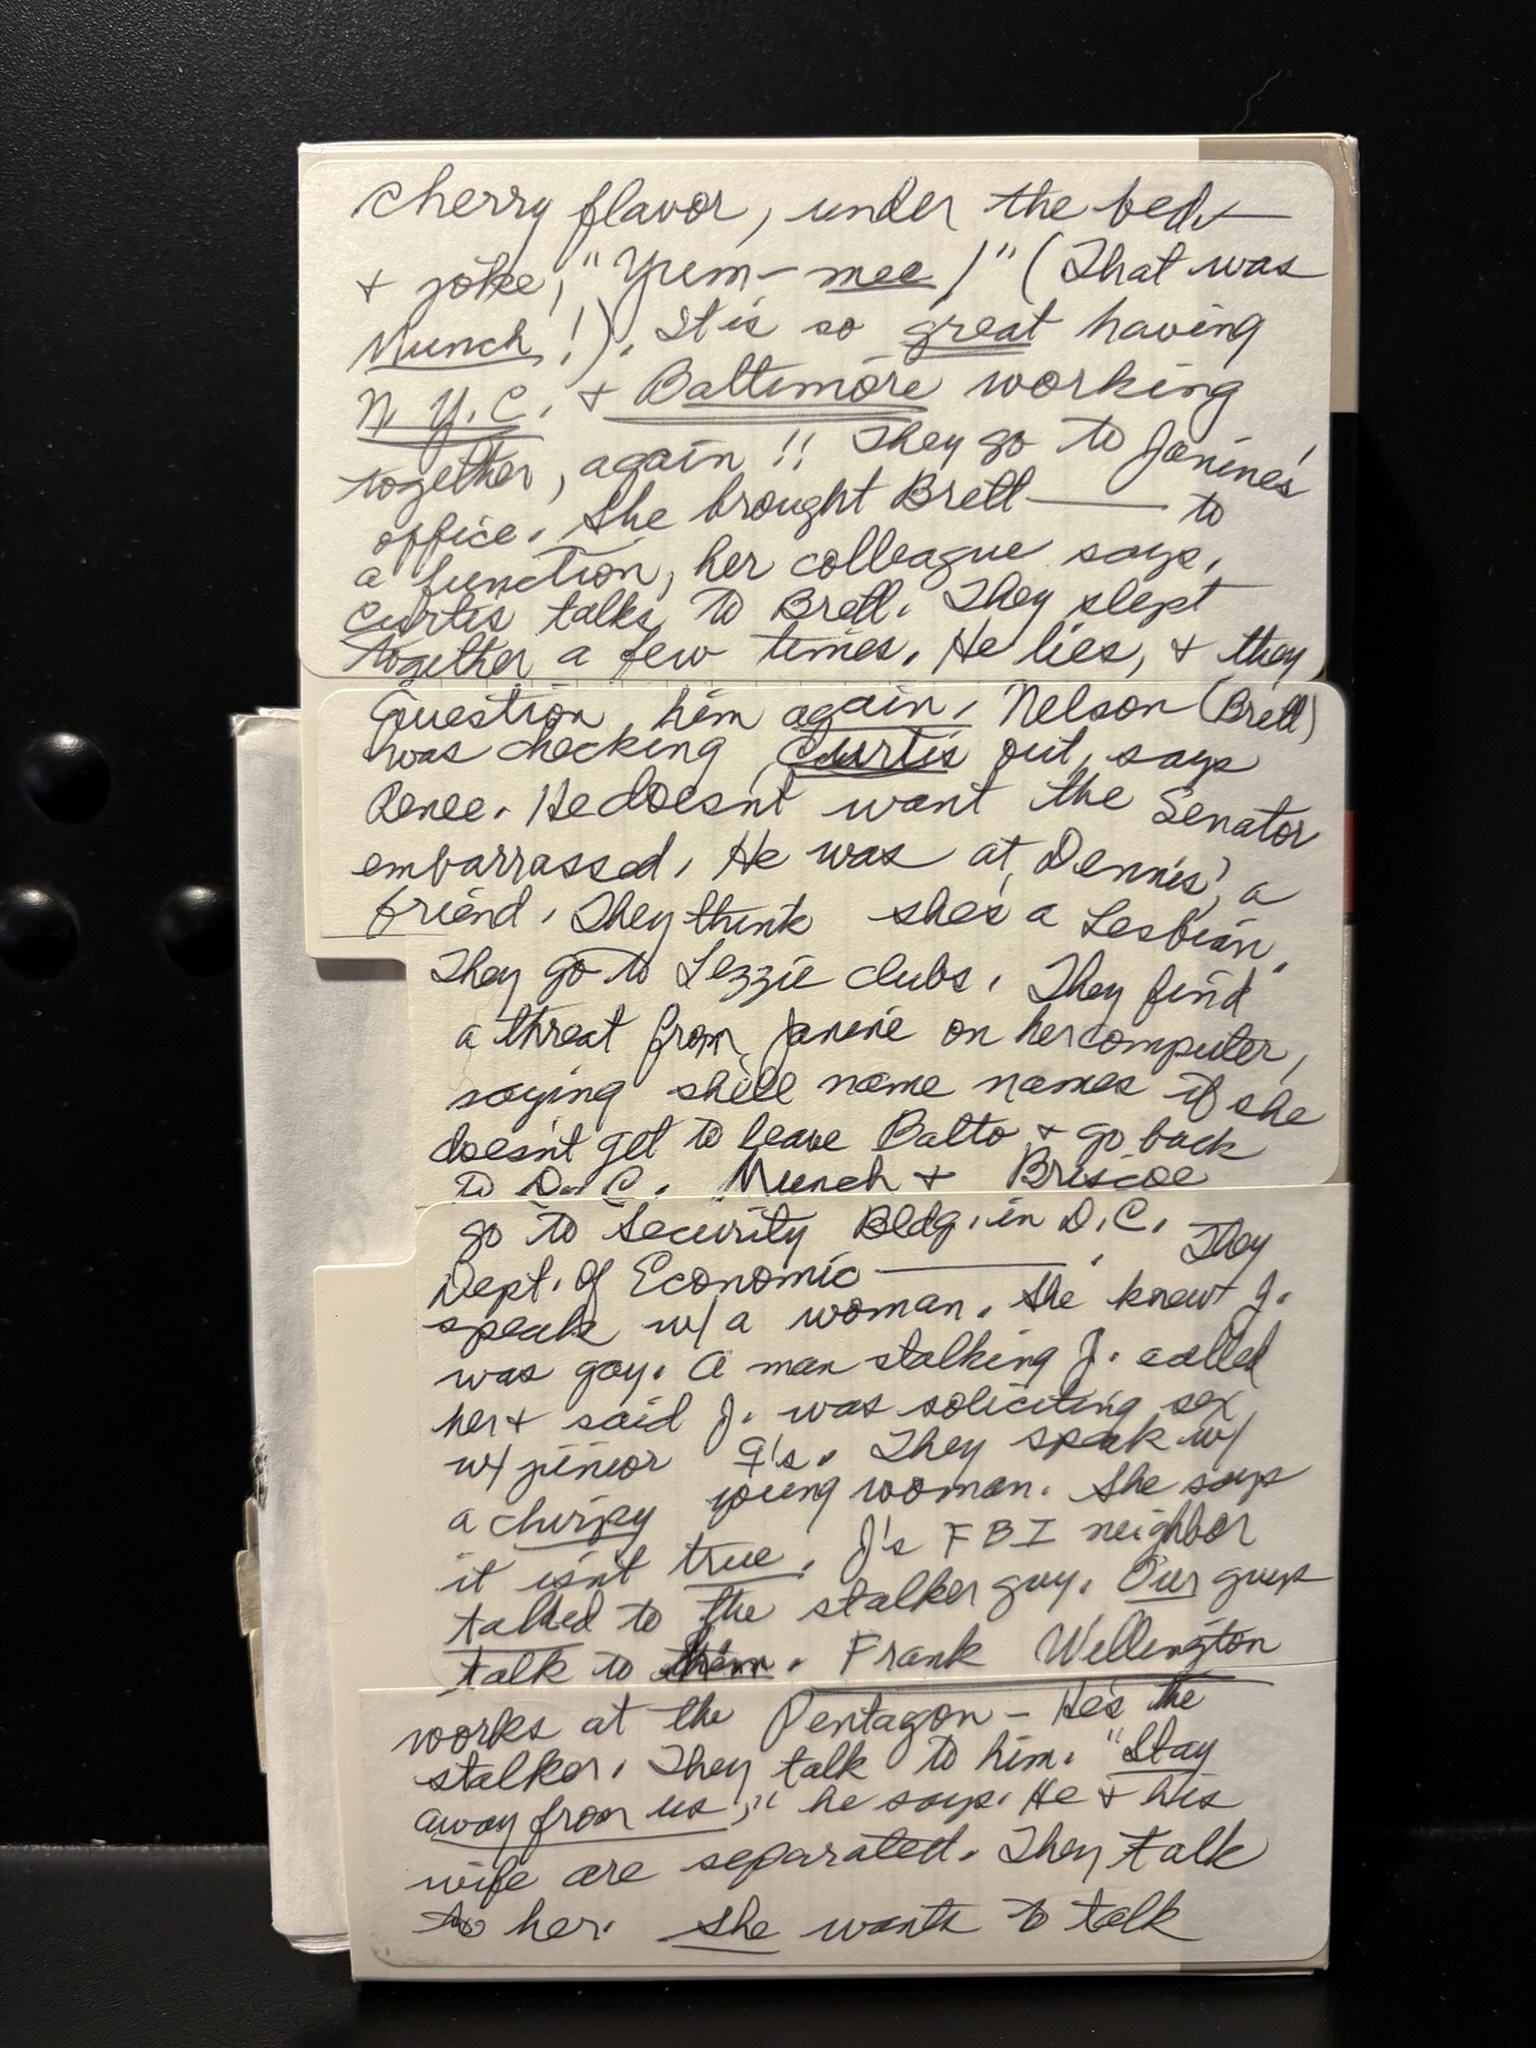 cherry flavor, under the bed,
+ joke, "Yum-mee!" (That was
Munch!). It is so great having
N.Y.C. + Baltimore working
together, again!! They go to Janine's
office. She brought Brett —— to
a function, her colleague says.
Curtis talks to Brett. They slept
together a few times. He lies, + they
Question him again. Nelson (Brett)
was checking Curtis out, says
Renee. He doesn't want the Senator
embarrassed. He was at Dennis', a
friend. They think she's a Lesbian.
They go to Lezzie clubs. They find
a threat from Janine on her computer,
saying she'll name names if she
doesn't get to leave Balto + go back
to D.C. Munch + Briscoe
go to Security Bldg. in D.C.
Dept. of Economic ——. They
speak w/ a woman. She knew J.
was gay. A man stalking J. called
her + said J. was soliciting sex
w/ junior G's. They speak w/
a chirpy young woman. She says
it isn't true. J's FBI neighbor
talked to the stalker guy. Our guys
talk to him. Frank Wellington
works at the Pentagon – He's the
stalker. They talk to him. "Stay
away from us," he says. He + his
wife are separated. They talk
to her. She wants to talk